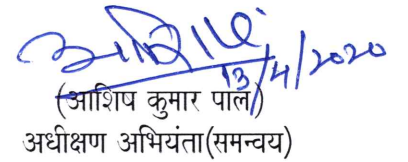 13/4/2020
(आशिष कुमार पाल)
अधीक्षण अभियंता(समन्वय)